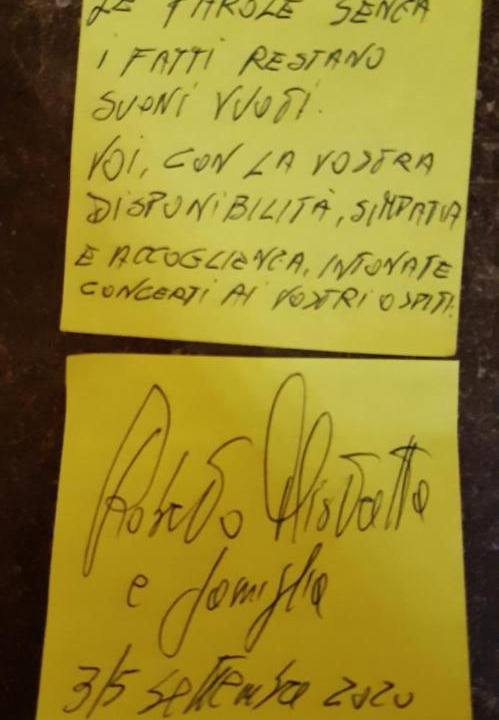 LE PAROLE SENZA
I FATTI RESTANO
SUONI VUOTI.
VOI, CON LA VOSTRA
DISPONIBILITÀ, SIMPATIA
E ACCOGLIENZA, INTONATE
CONCERTI AI VOSTRI OSPITI.
Roberto
e famiglia
3/5 settembre 2020